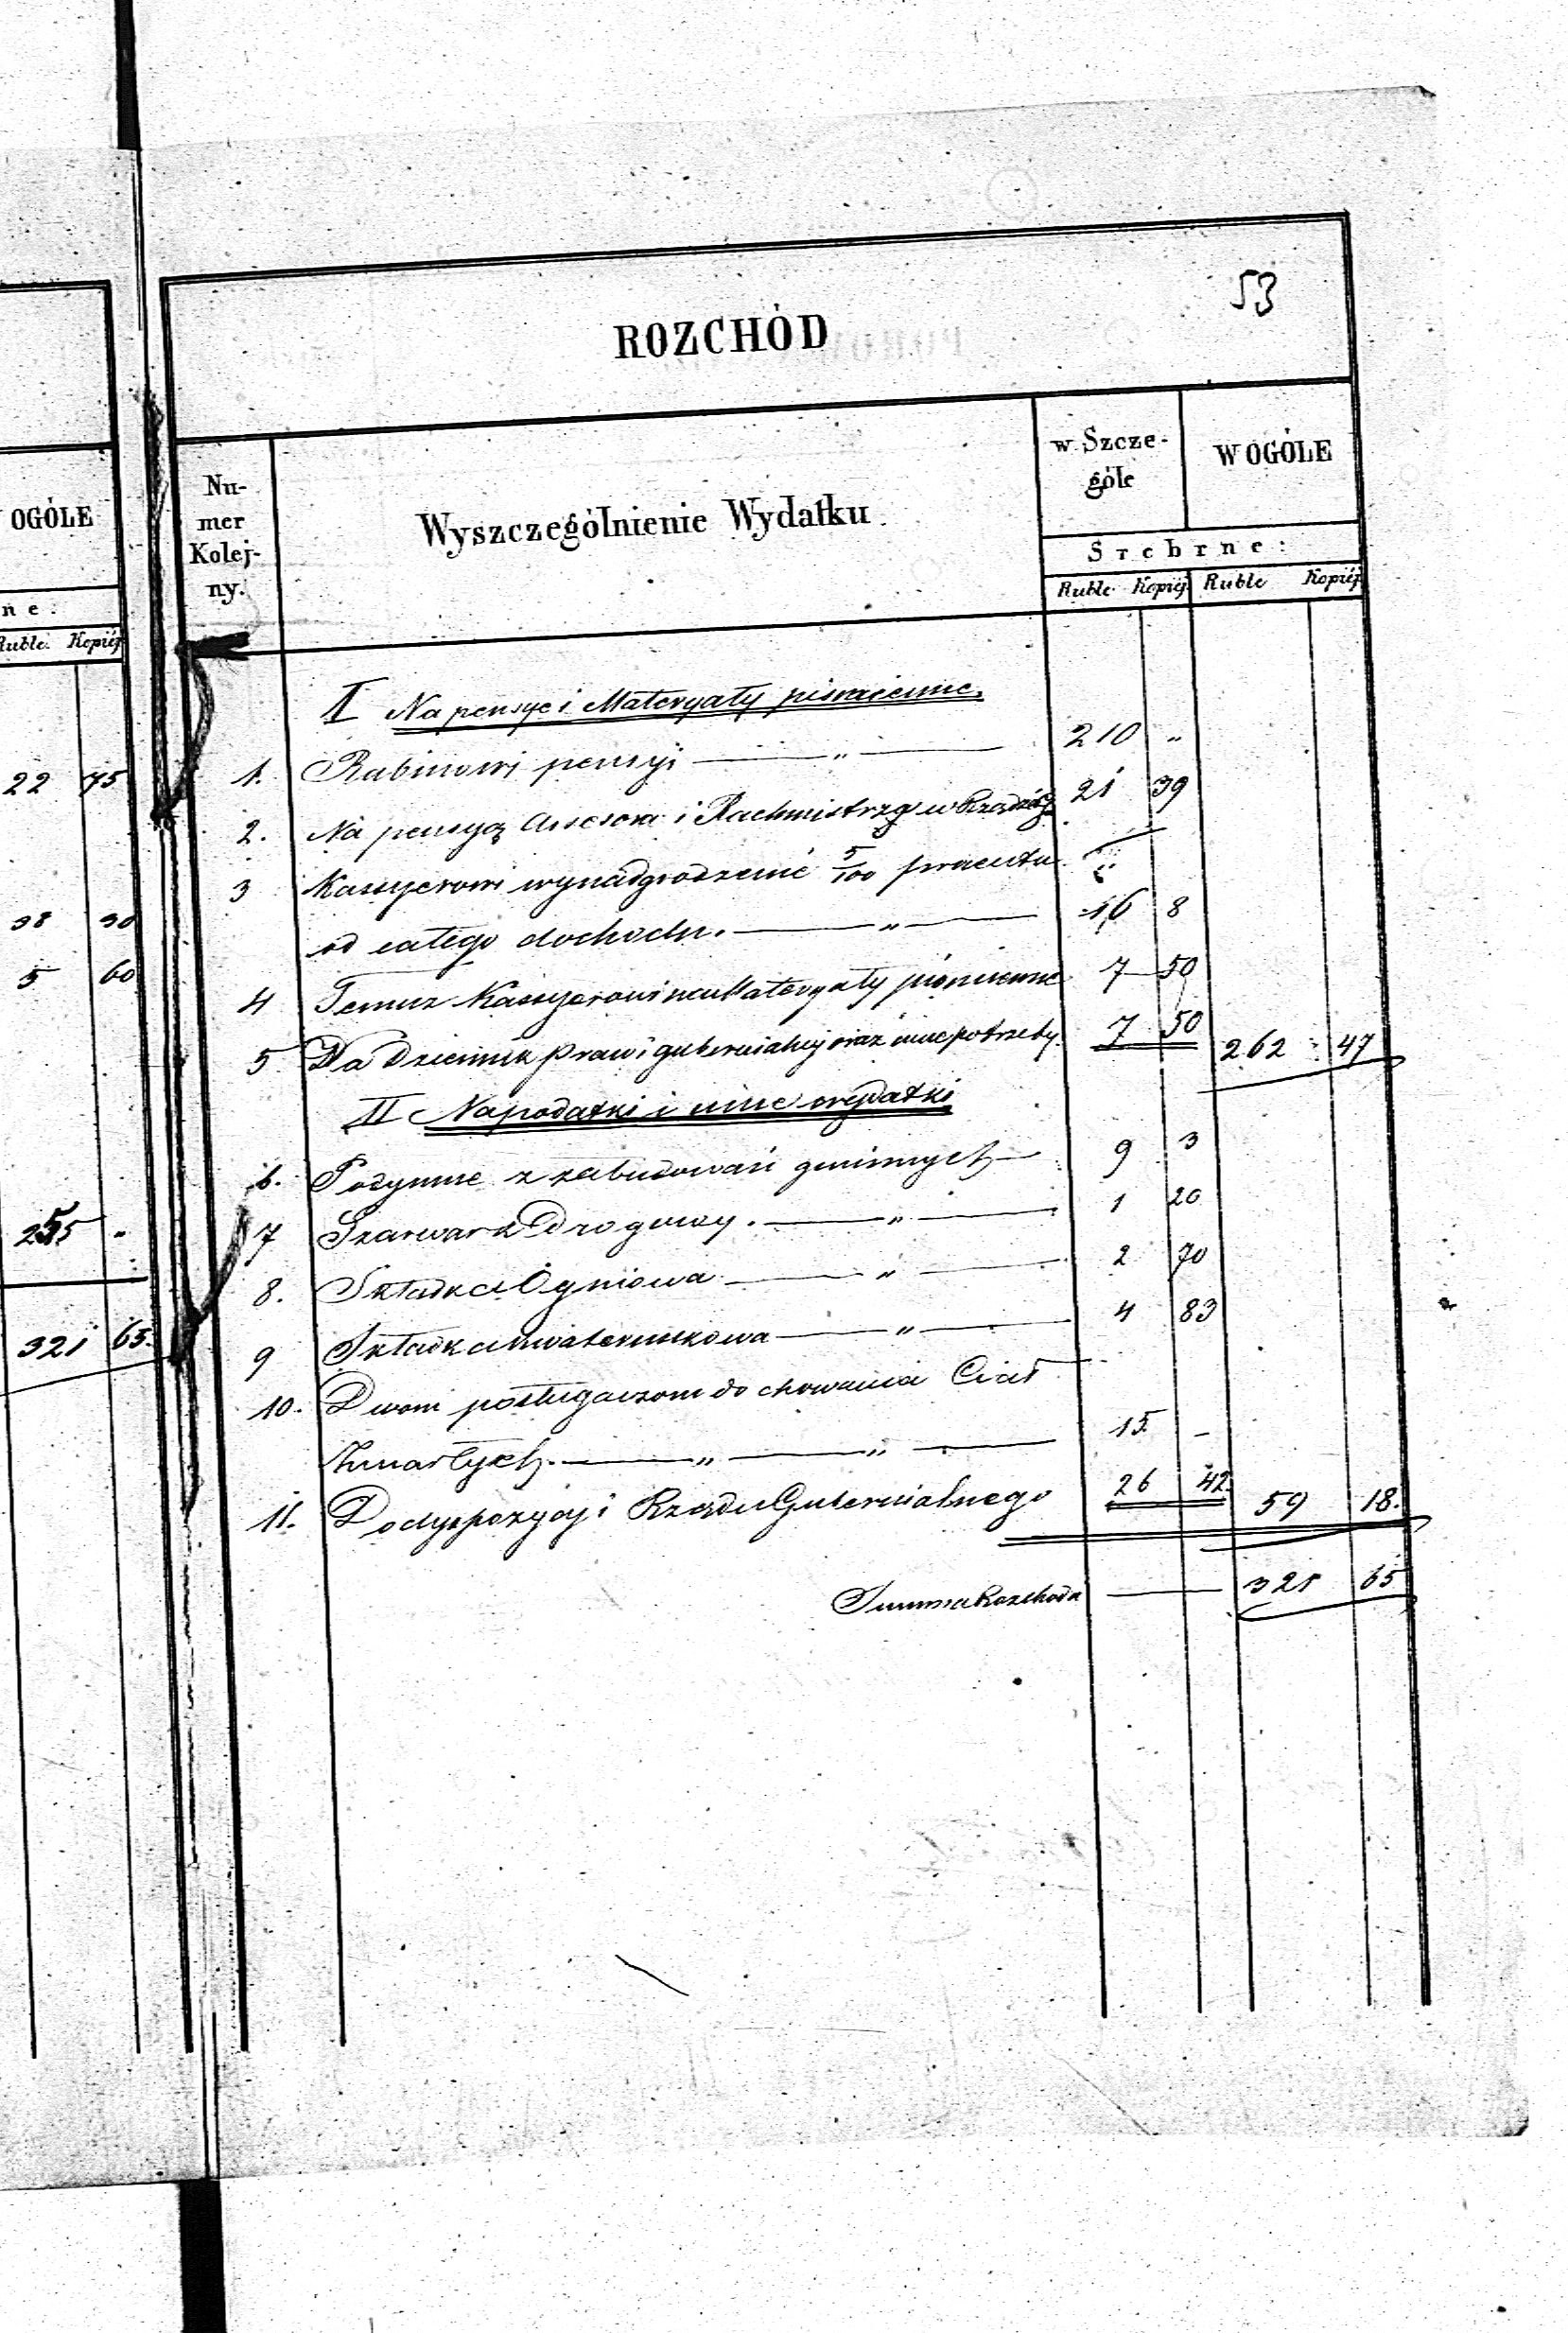 OGÓLE
ne:
Ruble. Kopiéj
22 75
38 30
5 60
255 "
321 65.
53
ROZCHÓD
Nu-
mer
Kolej-
ny.
Wyszczególnienie Wydatku
w Szcze-
góle
W OGÓLE
Srebrne:
Ruble Kopiéj Ruble Kopiéj
I Na pensye i Materyały piśmienne.
1. Rabinowi pensyi " 210 "
2. Na pensyą Assesora i Rachmistrza w Rządzie 21 39
3 Kassyerowi wynadgrodzenie 5/100 procentu
od całego dochodu. " 16 8
4 Temuż Kassyerowi na Materyały piśmienne 7 50
5 Na Dziennik praw i gubernialny oraz inne potrzeby 7 50 262 47
II Na podatki i inne wydatki
6. Podymne z zabudowań gminnych 9 3
7 Szarwark Drogowy. " 1 20
8. Składka Ogniowa " 2 70
9 Składka kwaterunkowa " 4 83
10. Dwom posługaczom do chowania Ciał
Zmarłych. " " 15 -
11. Do dyspozycyi Rządu Gubernialnego 26 42 59 18.
Summa Rozchodu 321 65